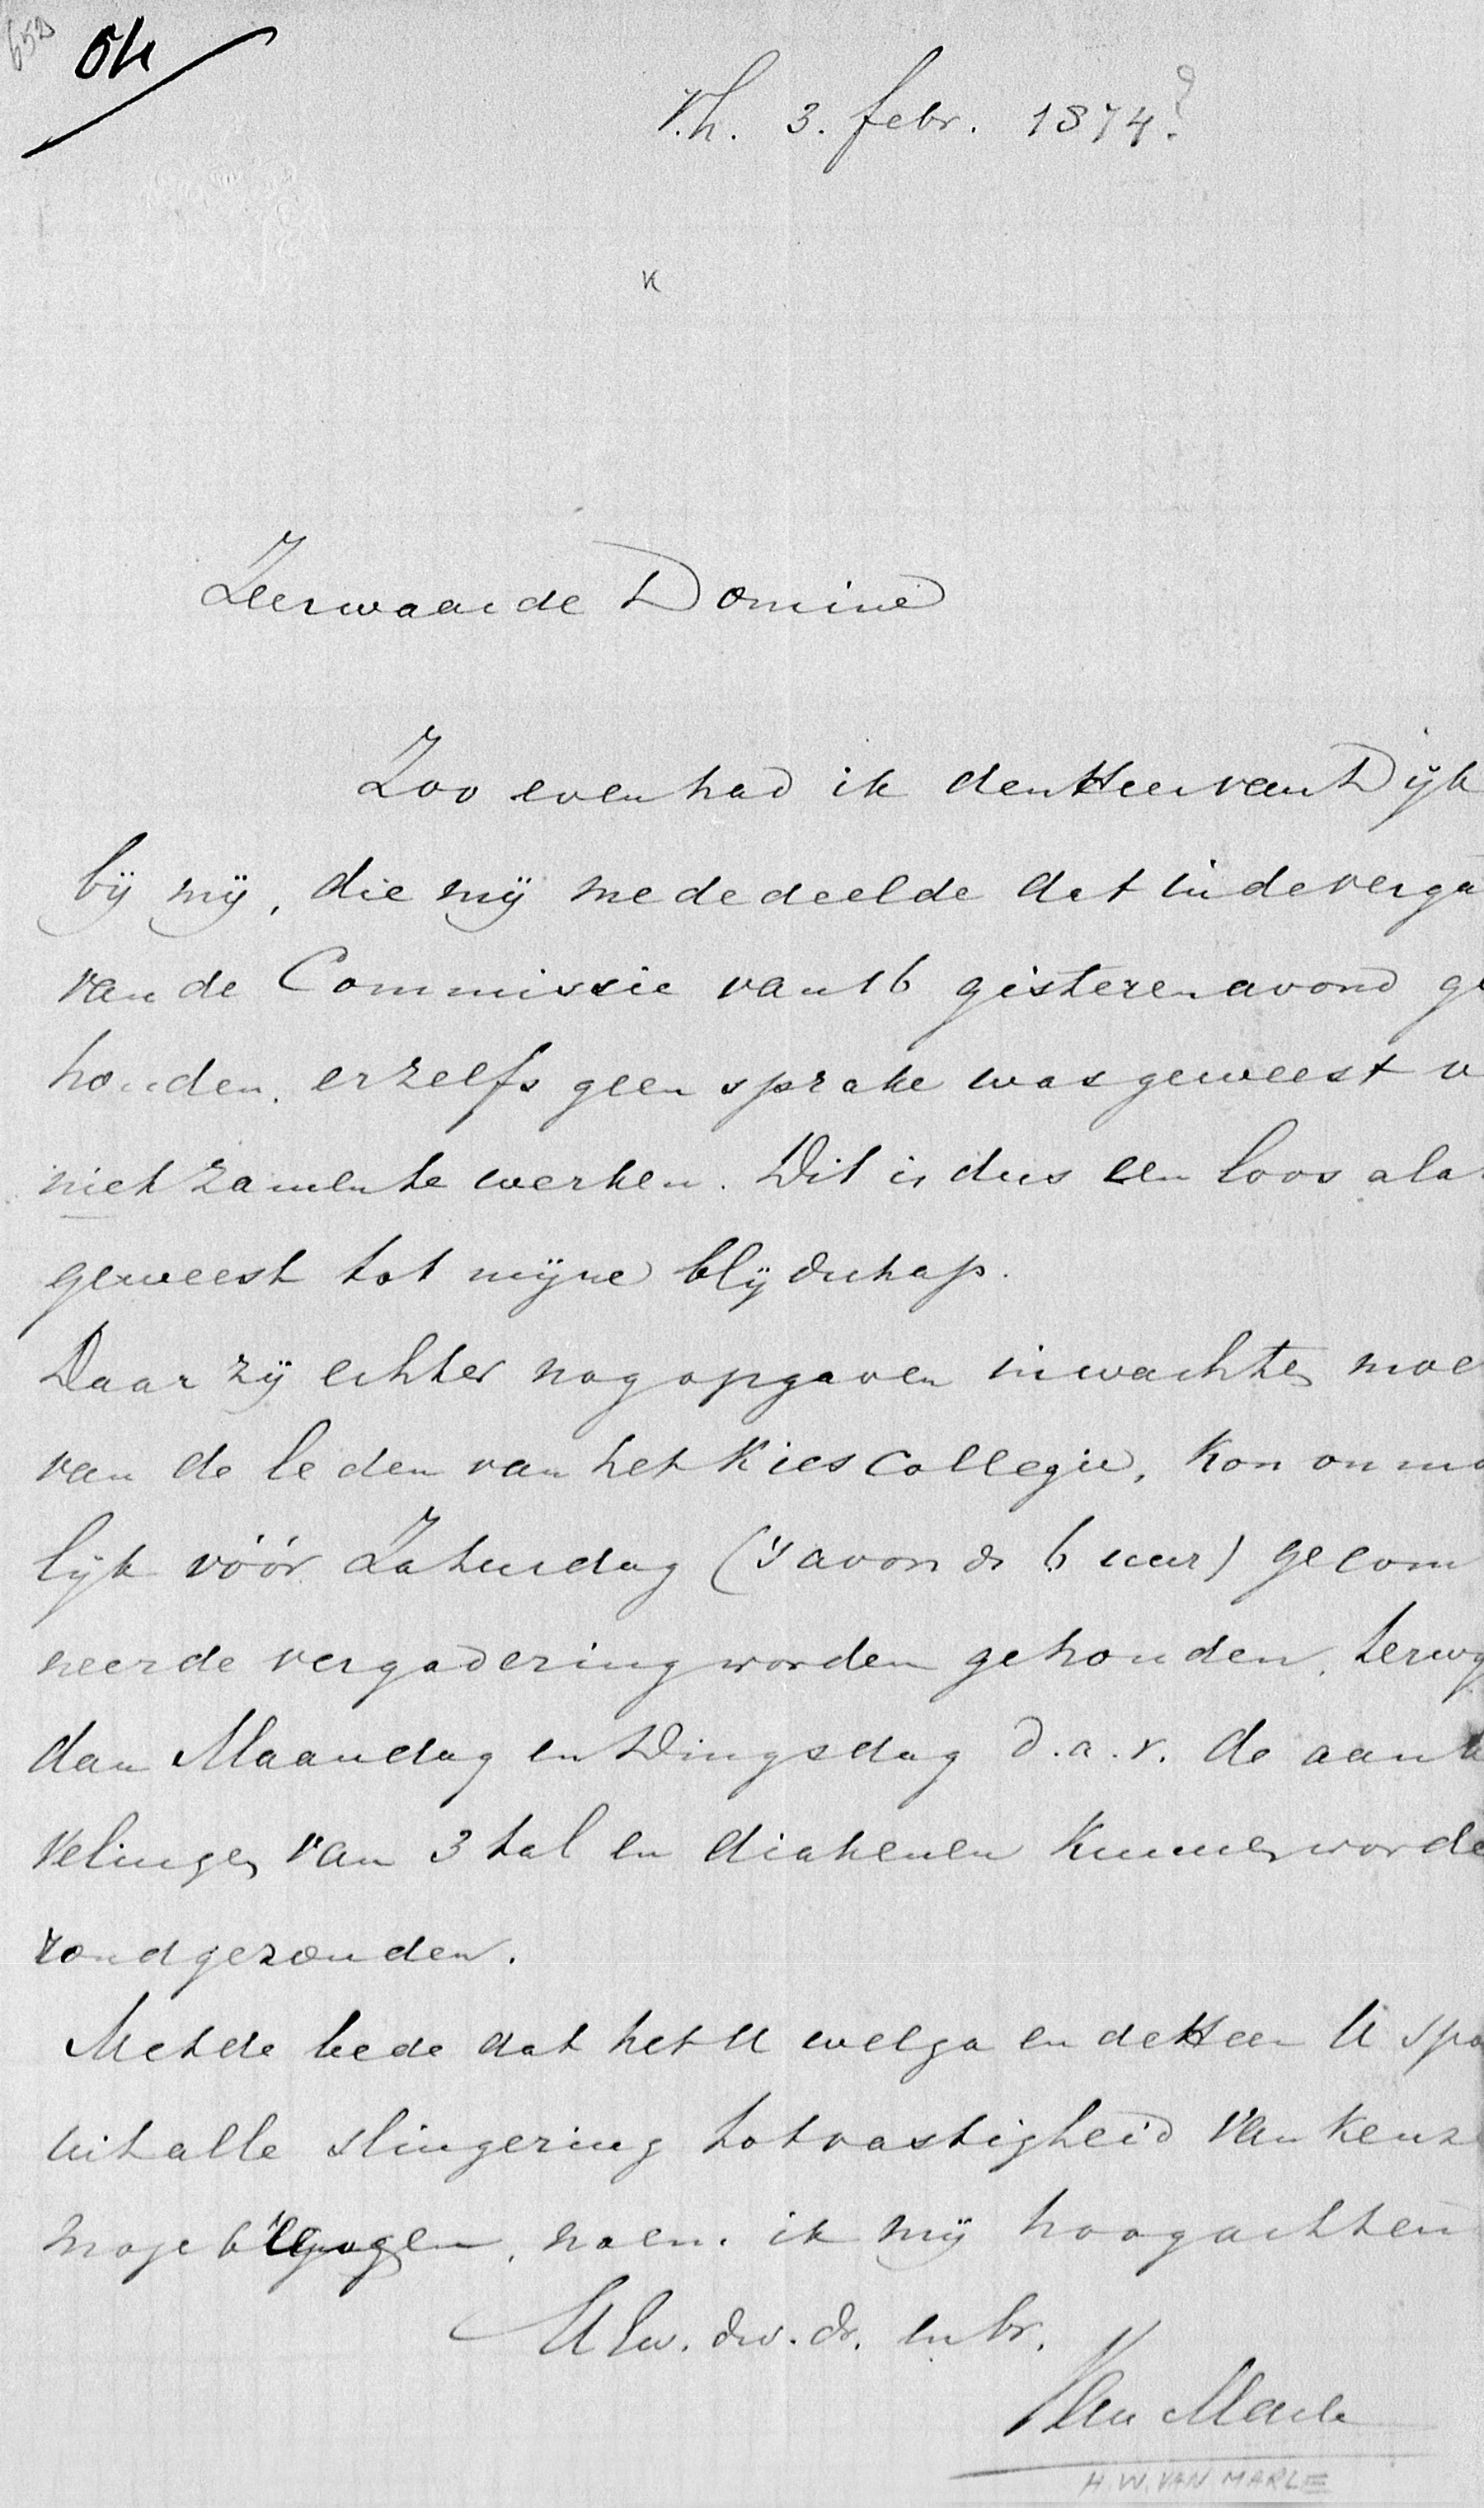 652
54
V.h. 3. febr. 1874?
K
Zeerwaarde Domine
Zoo even had ik den Heer van Dijk
bij mij, die mij mededeelde dat in de verga
van de Commissie van 16 gisteren avond ge
houden, er zelfs geen sprake was geweest v
niet zamen te werken. Dit is dus een loos ala
geweest tot mijne blijdschap.
Daar zij echter nog opgaven inwachten moe
van de leden van het Kiescollegie, kon onmo
lijk vóór Zaturdag ('s avonds 6 uur) gecom
neerde vergadering worden gehouden, terwij
dan Maandag en Dingsdag d.a.v. de aanb
velingen van 3 tal en diakenen kunnen worde
rondgezonden.
Met de bede dat het U welga en de Heer U spo
uit alle slingering tot vastigheid van keuze
moge brengen, noem ik mij hoogachten
UEw. dw. dr. en br.
Van Marle
H.W. VAN MARLE